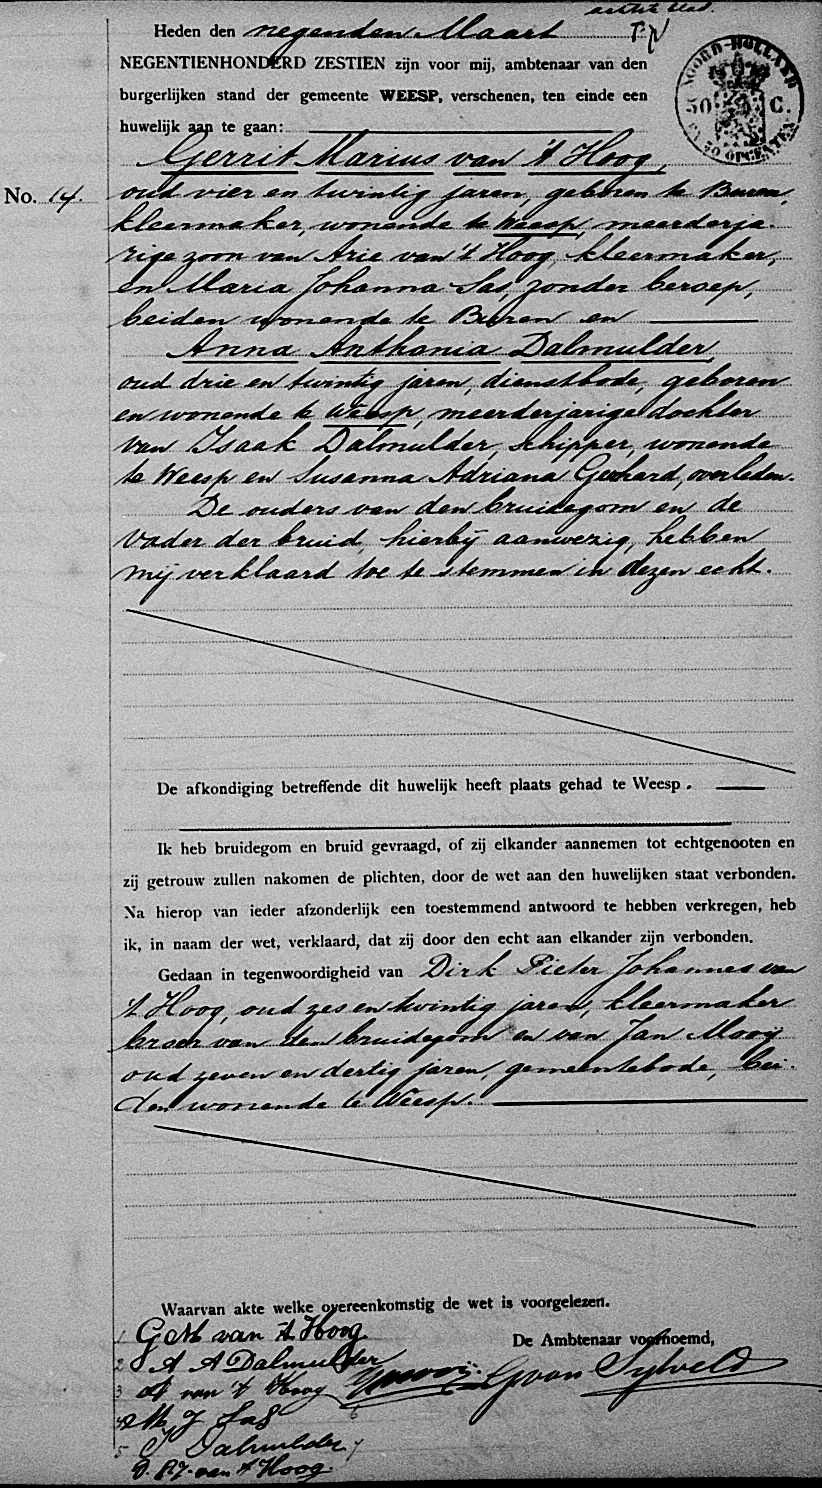 achtste blad.
Heden den negenden Maart
NEGENTIENHONDERD ZESTIEN zijn voor mij, ambtenaar van den
burgerlijken stand der gemeente WEESP, verschenen, ten einde een
huwelijk aan te gaan:
NOORD-HOLLAND
50 C.
EN 50 OPCENTEN
Gerrit Marius van 't Hoog,
No. 14.
oud vier en twintig jaren, geboren te Buren,
kleermaker, wonende te Weesp, meerderja-
rige zoon van Arie van 't Hoog, kleermaker,
en Maria Johanna Sas, zonder beroep,
beiden wonende te Buren en
Anna Anthonia Dalmulder
oud drie en twintig jaren, dienstbode, geboren
en wonende te Weesp, meerderjarige dochter
van Isaak Dalmulder, schipper, wonende
te Weesp en Susanna Adriana Gerhard, overleden.
De ouders van den bruidegom en de
Vader der bruid, hierbij aanwezig, hebben
mij verklaard toe te stemmen in dezen echt.
De afkondiging betreffende dit huwelijk heeft plaats gehad te Weesp.
Ik heb bruidegom en bruid gevraagd, of zij elkander aannemen tot echtgenooten en
zij getrouw zullen nakomen de plichten, door de wet aan den huwelijken staat verbonden.
Na hierop van ieder afzonderlijk een toestemmend antwoord te hebben verkregen, heb
ik, in naam der wet, verklaard, dat zij door den echt aan elkander zijn verbonden.
Gedaan in tegenwoordigheid van Dirk Pieter Johannes van
't Hoog, oud zes en twintig jaren, kleermaker
broer van den bruidegom en van Jan Mooij
oud zeven en dertig jaren, gemeentebode, bei-
den wonende te Weesp.
Waarvan akte welke overeenkomstig de wet is voorgelezen.
1 G M van 't Hoog
De Ambtenaar voornoemd,
2 A A Dalmulder
3 A van 't Hoog
JMooij
G van Sylveld
4 M J Sas
6
5 I Dalmulder
D. P. J. van 't Hoog.